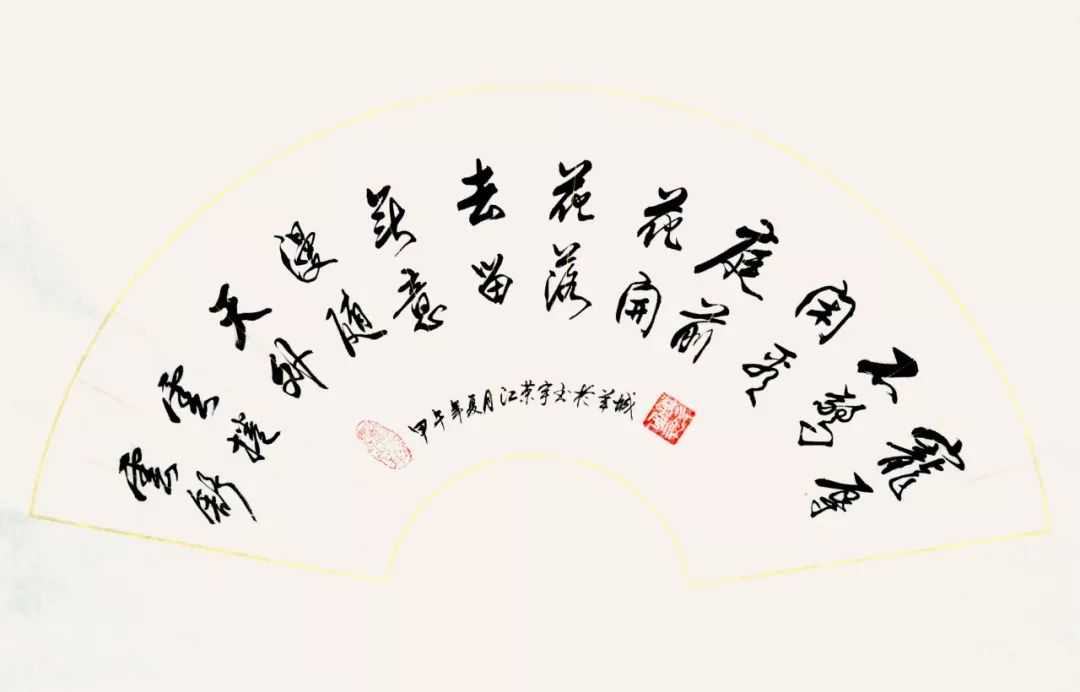 寵辱
不驚
閑看
庭前
花開
花落
去留
無意
漫隨
天外
雲捲
雲舒
甲午年夏月江荣宇书於羊城